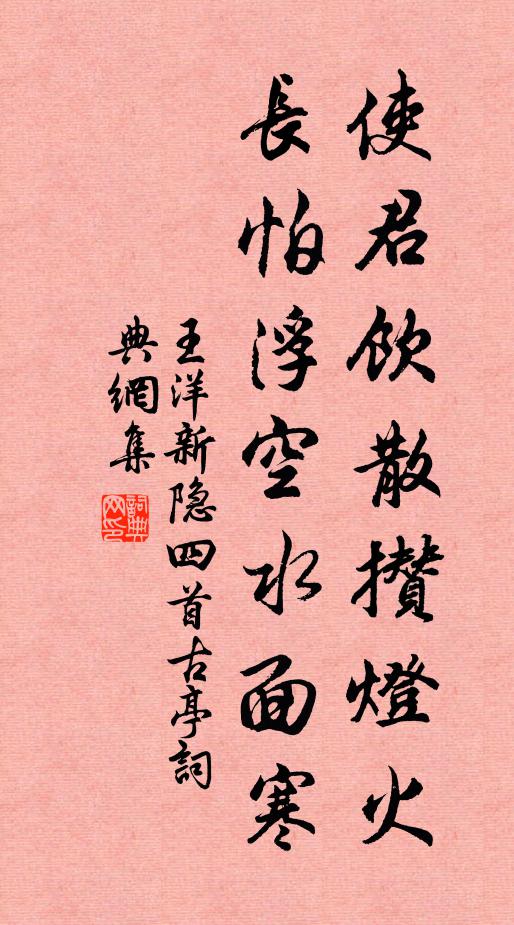 使君飲散攢燈火
長怕浮空水面寒
王洋新隐四首古亭詞
典網集
詞典
网印